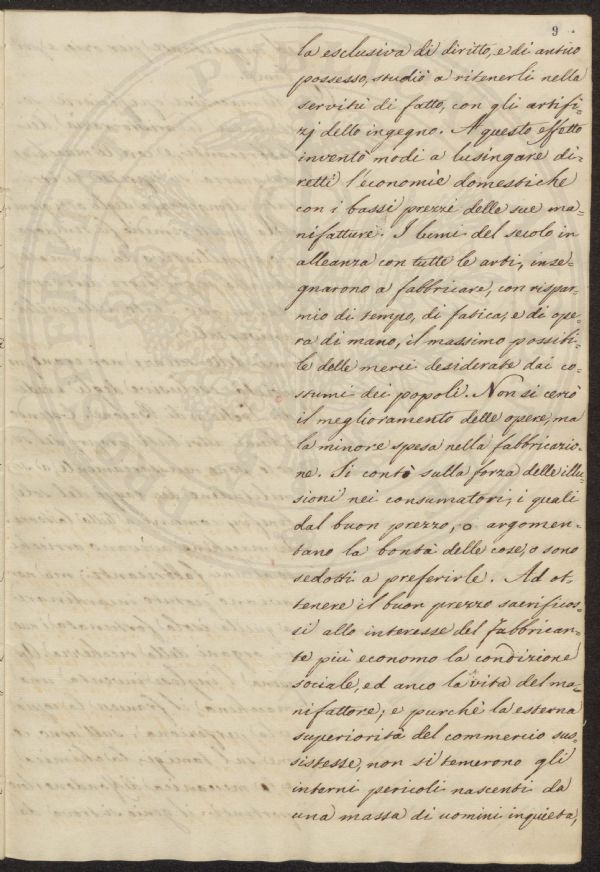 9
la esclusiva di diritto, e di antico
possesso, studiò a ritenerli nella
servitù di fatto, con gli artifi=
zj dello ingegno. A questo effetto
inventò modi a lusingare di=
retti l'economie domestiche
con i bassi prezzi delle sue ma=
nifatture. I lumi del secolo in
alleanza con tutte le arti, inse=
gnarono a fabbricare, con rispar=
mio di tempo, di fatica, e di ope=
ra di mano, il massimo possibi=
le delle merci desiderate dai co=
stumi dei popoli. Non si cercò
il meglioramento delle opere, ma
la minore spesa nella fabbricazio=
ne. Si contò sulla forza delle illu=
sioni nei consumatori, i quali
dal buon prezzo, o argomen=
tano la bontà delle cose, o sono
sedotti a preferirle. Ad ot=
tenere il buon prezzo sacrificos=
si allo interesse del Fabbrican=
te più economo la condizione
sociale, ed anco la vita del ma=
nifattore; e purchè la esterna
superiorità del commercio sus=
sistesse, non si temerono gli
interni pericoli nascenti da
una massa di uomini inquieta,